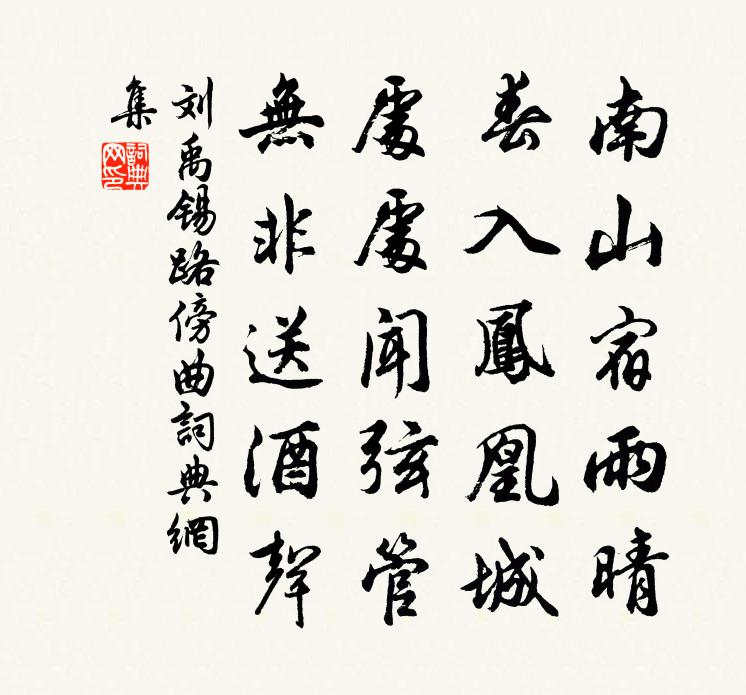 南山宿雨晴
春入鳳凰城
處處聞弦管
無非送酒聲
刘禹锡路傍曲詞典網
集
詞典网印